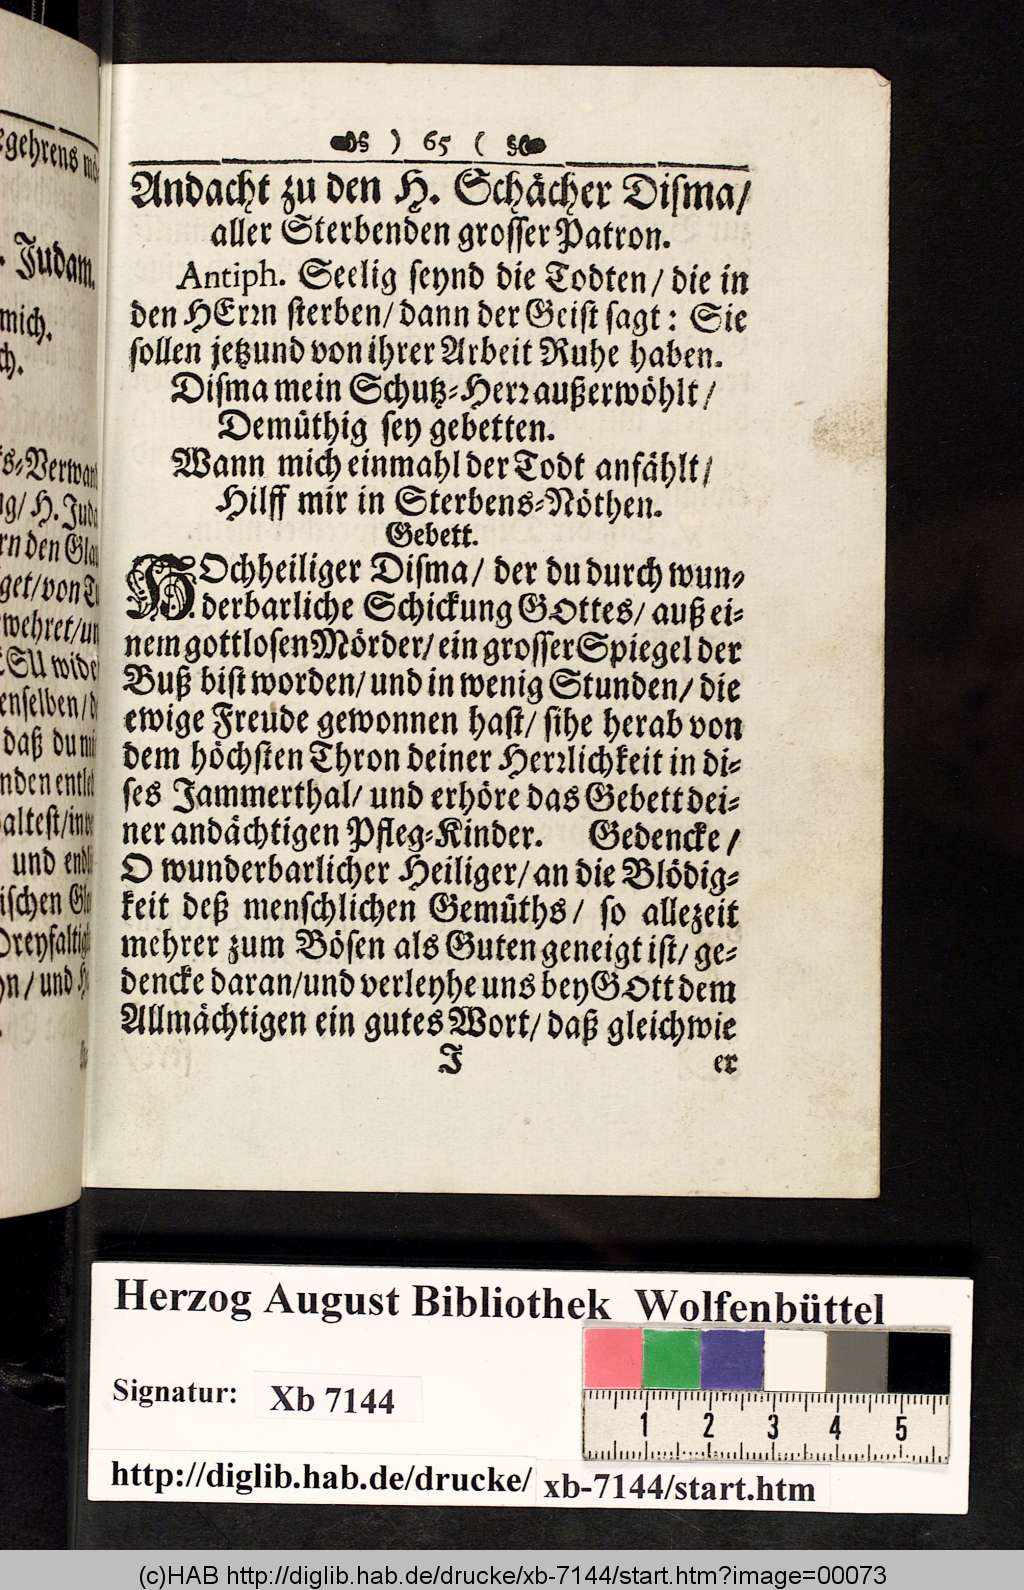 ) 65 (
Andacht zu den H. Schächer Disma/
aller Sterbenden grosser Patron.
Antiph. Seelig seynd die Todten/ die in
den HErrn sterben/ dann der Geist sagt: Sie
sollen jetzund von ihrer Arbeit Ruhe haben.
Disma mein Schutz-Herr außerwöhlt/
Demüthig sey gebetten.
Wann mich einmahl der Todt anfählt/
Hilff mir in Sterbens-Nöthen.
Gebett.
HOchheiliger Disma/ der du durch wun-
derbarliche Schickung GOttes/ auß ei-
nem gottlosen Mörder/ ein grosser Spiegel der
Buß bist worden/ und in wenig Stunden/ die
ewige Freude gewonnen hast/ sihe herab von
dem höchsten Thron deiner Herrlichkeit in di-
ses Jammerthal/ und erhöre das Gebett dei-
ner andächtigen Pfleg-Kinder. Gedencke/
O wunderbarlicher Heiliger/ an die Blödig-
keit deß menschlichen Gemüths/ so allezeit
mehrer zum Bösen als Guten geneigt ist/ ge-
dencke daran/ und verleyhe uns bey GOtt dem
Allmächtigen ein gutes Wort/ daß gleichwie
J er
Herzog August Bibliothek Wolfenbüttel
Signatur: Xb 7144
1 2 3 4 5
http://diglib.hab.de/drucke/ xb-7144/start.htm
(c)HAB http://diglib.hab.de/drucke/xb-7144/start.htm?image=00073